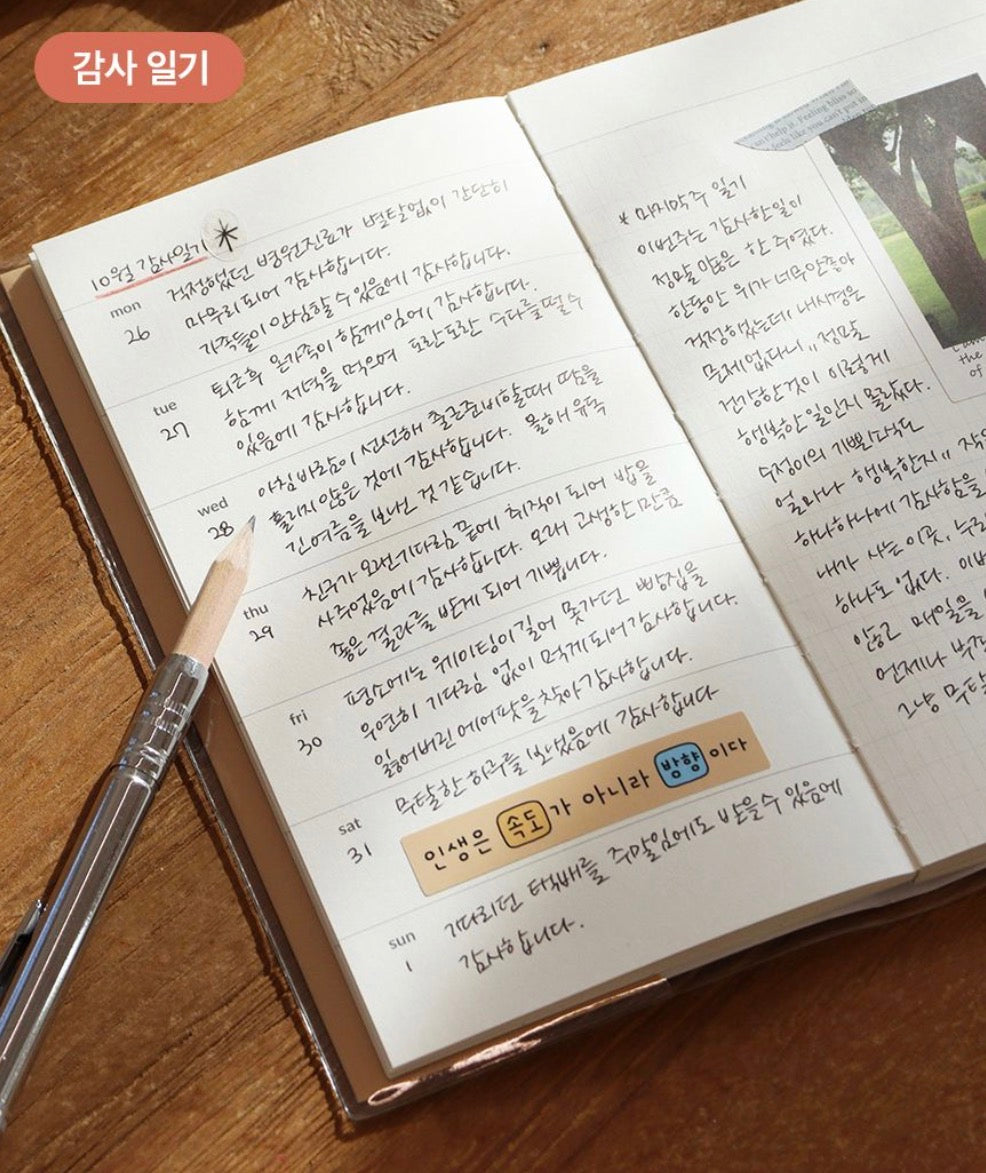 감사 일기
10월 감사일기
mon
26
걱정했던 병원진료가 별탈없이 간단히
마무리 되어 감사합니다.
가족들이 안심할 수 있음에 감사합니다.
tue
27
퇴근후 온가족이 함께임에 감사합니다.
함께 저녁을 먹으며 도란도란 수다를 떨 수
있음에 감사합니다.
wed
28
아침 바람이 선선해 출근준비할때 땀을
흘리지 않은 것에 감사합니다. 올해 유독
긴여름을 보낸 것 같습니다.
thu
29
친구가 오랜기다림 끝에 취직이 되어 밥을
사주었음에 감사합니다. 오래 고생한 만큼
좋은 결과를 받게 되어 기쁩니다.
fri
30
평소에는 웨이팅이 길어 못가던 빵집을
우연히 기다림 없이 먹게되어 감사합니다.
잃어버린 에어팟을 찾아 감사합니다.
sat
31
무탈한 하루를 보냈음에 감사합니다
인생은 속도가 아니라 방향이다
sun
1
기다리던 택배를 주말임에도 받을 수 있음에
감사합니다.
* 마지막주 일기
이번주는 감사한일이
정말 많은 한 주였다.
한동안 위가 너무 안좋아
걱정했었는데 내시경은
문제없다니,, 정말
건강한것이 이렇게
행복한 일인지 몰랐다.
수정이의 기쁜
얼마나 행복한지,,
하나하나에 감사함을
내가 사는 이곳,
하나도 없다.
않고 매일을
언제나
그냥 무탈
so I help it. Feeling bliss so
feels like you can't put in
the
of